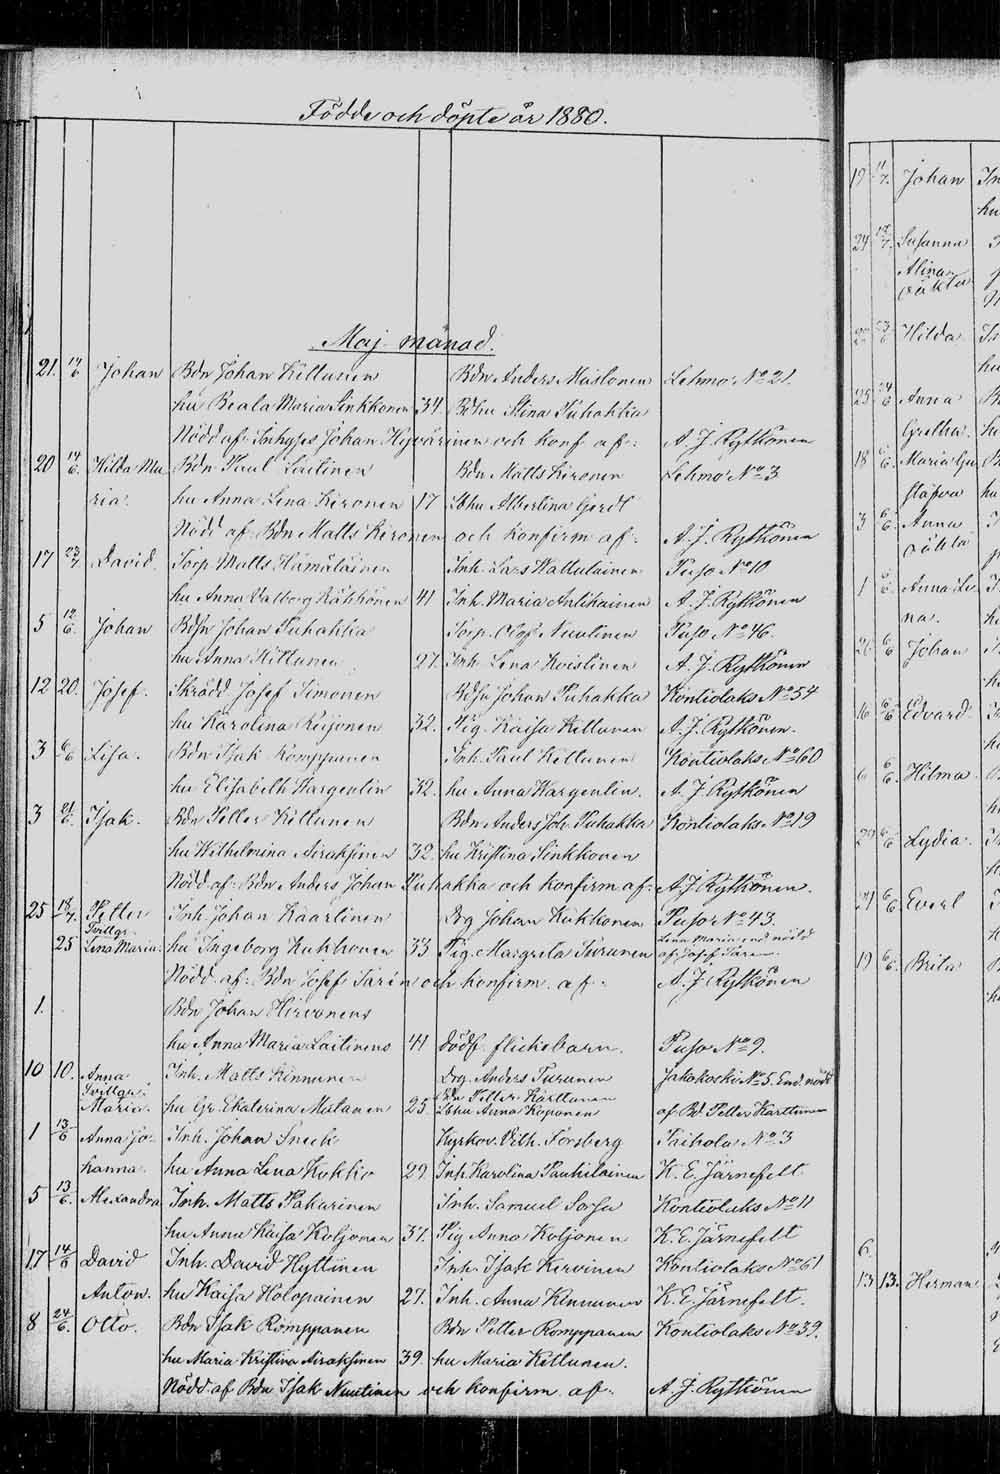 Födde och döpte år 1880.
Maj månad.
21. 14/6 Johan Bdn Johan Kettunen Bdn Anders Mustonen Lehmo No 21.
hu Beata Maria Sinkkonen 34 Bdhu Stina Puhakka
Nödd af: Inhyses Johan Hyvärinen och konf af: A. J. Rytkönen
20 14/6 Hilda Ma Bdn Paul Laitinen Bdn Matts Kironen Lehmo No 3
ria. hu Anna Lena Kironen 17 Lbhu Albertina Gerdt
Nödd af: Bdn Matts Kironen och konfirm af: A. J. Rytkönen
17 23/7 David. Torp. Matts Hämäläinen Inh. Lars Wattulainen Puso No 10
hu Anna Valborg Räkkönen 41 Inh. Maria Antikainen A. J. Rytkönen
5 12/6 Johan Bdsn Johan Puhakka Torp. Olof Nuutinen Puso No 46.
hu Anna Kettunen 27. Inh. Lena Koistinen A. J. Rytkönen
12 20. Josef. Skrädd. Josef Simonen Bdsn Johan Puhakka Kontiolaks No 54
hu Karolina Reijonen 32. Pig. Kaisa Kettunen A. J. Rytkönen.
3 6/6 Lisa. Bdn Isak Romppanen Inh. Paul Kettunen Kontiolaks No 60
hu Elisabeth Wargentin 32. hu Anna Wargentin. A. J. Rytkönen
3 21/6. Isak. Bdn Petter Kettunen Bdn Anders Joh. Puhakka Kontiolaks No 19
hu Wilhelmina Airaksinen 32. hu Kristina Sinkkonen
Nödd af: Bdn Anders Johan Puhakka och konfirm af: A. J. Rytkönen.
25 18/7. Petter Inh. Johan Kaartinen Drg Johan Kukkonen Puso No 43.
Tvillgr.
25 Lena Maria. hu Ingeborg Kukkonen 33 Pig. Margreta Turunen Lena Maria end nödd af Josef
Nödd af: Bdn Josef och konfirm. af: A. J. Rytkönen
1. Bdn Johan Hirvonens
hu Anna Maria Laitinens 41 dödf. flickebarn. Puso No 9.
10 10. Anna Inh. Matts Kinnunen Drg. Anders Turunen Jakokoski No 5. End. nödd
Tvillgr. Bdn Petter Karttunen
Maria. hu Gr. Ekaterina Mutanen 25 Lbhu Anna Koponen af Bd. Petter Karttunen
1 13/6 Anna Jo- Inh. Johan Sneck Kyrkov. Vilh. Forsberg Paihola No 3
hanna. hu Anna Lena Kokko 29. Inh. Karolina Pauhilainen K. E. Järnefelt
5 13/6. Alexandra Inh. Matts Pakarinen Inh. Samuel Sorsa Kontiolaks No 11
hu Anna Kaisa Koljonen 37. Pig Anna Koljonen K. E. Järnefelt
17 14/6 David Inh. David Hyttinen Inh. Isak Kervinen Kontiolaks No 61
Anton. hu Kaisa Holopainen 27. Inh. Anna Kinnunen K. E. Järnefelt.
8 24/6. Otto. Bdn Isak Romppanen Bdn Petter Romppanen Kontiolaks No 39.
hu Maria Kristina Airaksinen 39. hu Maria Kettunen.
Nödd. af Bdn Isak Nuutinen och konfirm. af: A. J. Rytkönen
19 11/7. Johan In
hu
24 Susanna
Alina
oäkta
Hilda In
hu
25 24/6 Anna B
Gretha. hu
18 6/6. Maria Gu
stafva hu
3 6/6 Anna
oäkta
1 6/6 Anna Le
na.
6/6 Johan
16 6/6 Edvard.
6 6/6. Hilma.
29 6/6 Lydia.
21 6/6 Evert
19 6/6. Brita
6.
13 13. Herman.